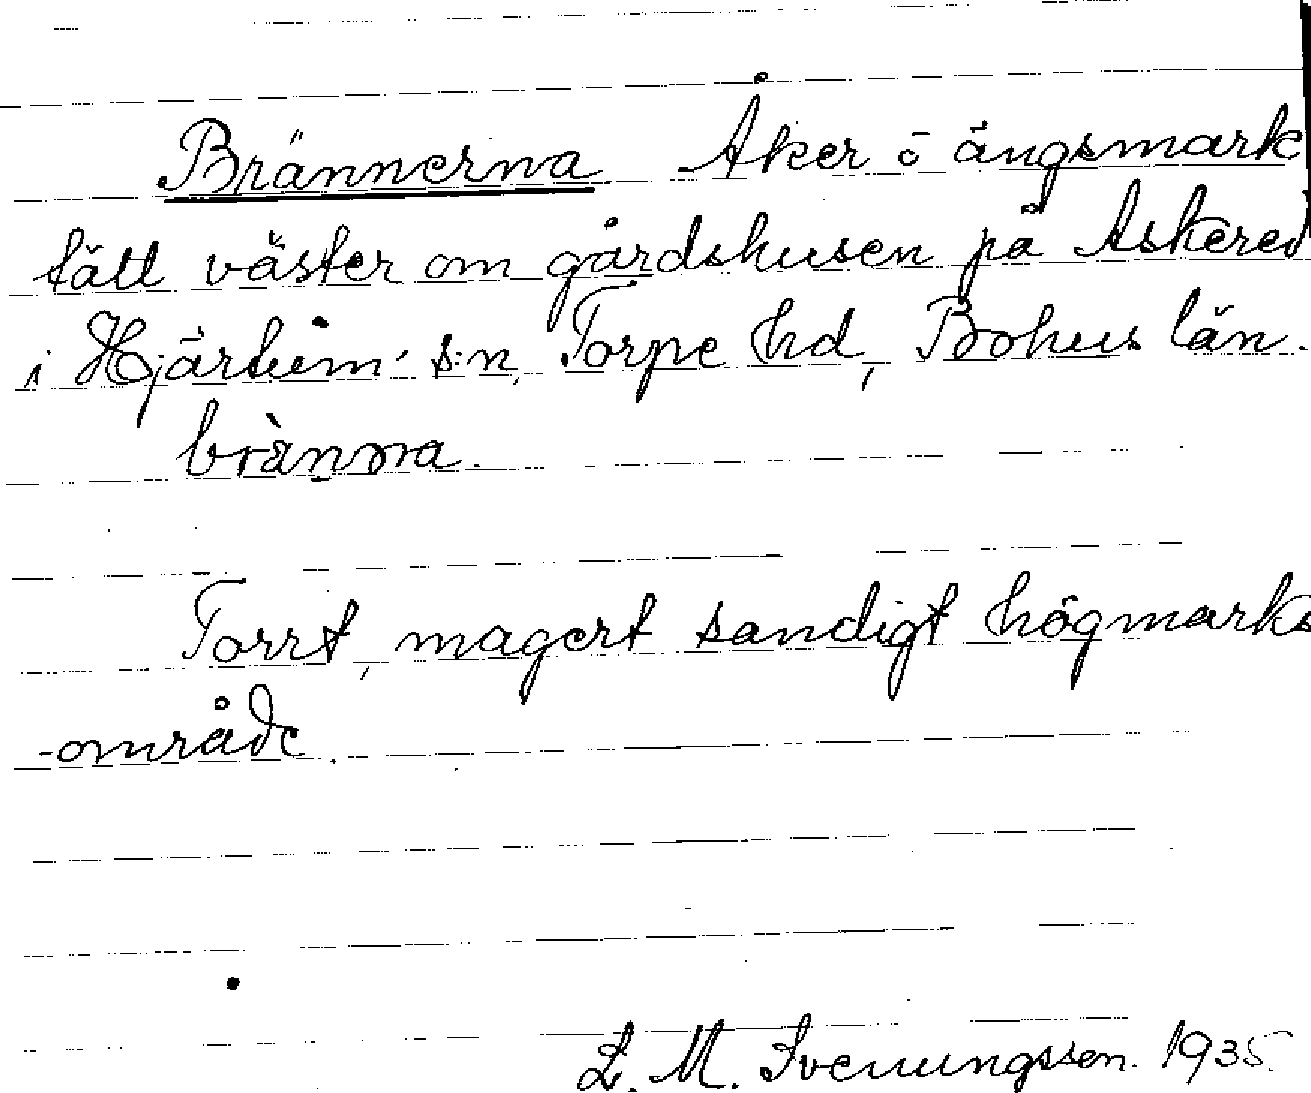 Brännerna Åker ō ängsmark
tätt väster om gårdshusen på Askered
i Hjärtum s:n, Torpe hd, Bohus län.
brànna.
Torrt, magert sandigt högmarks
-område.
L. M. Svenungsson. 1935.